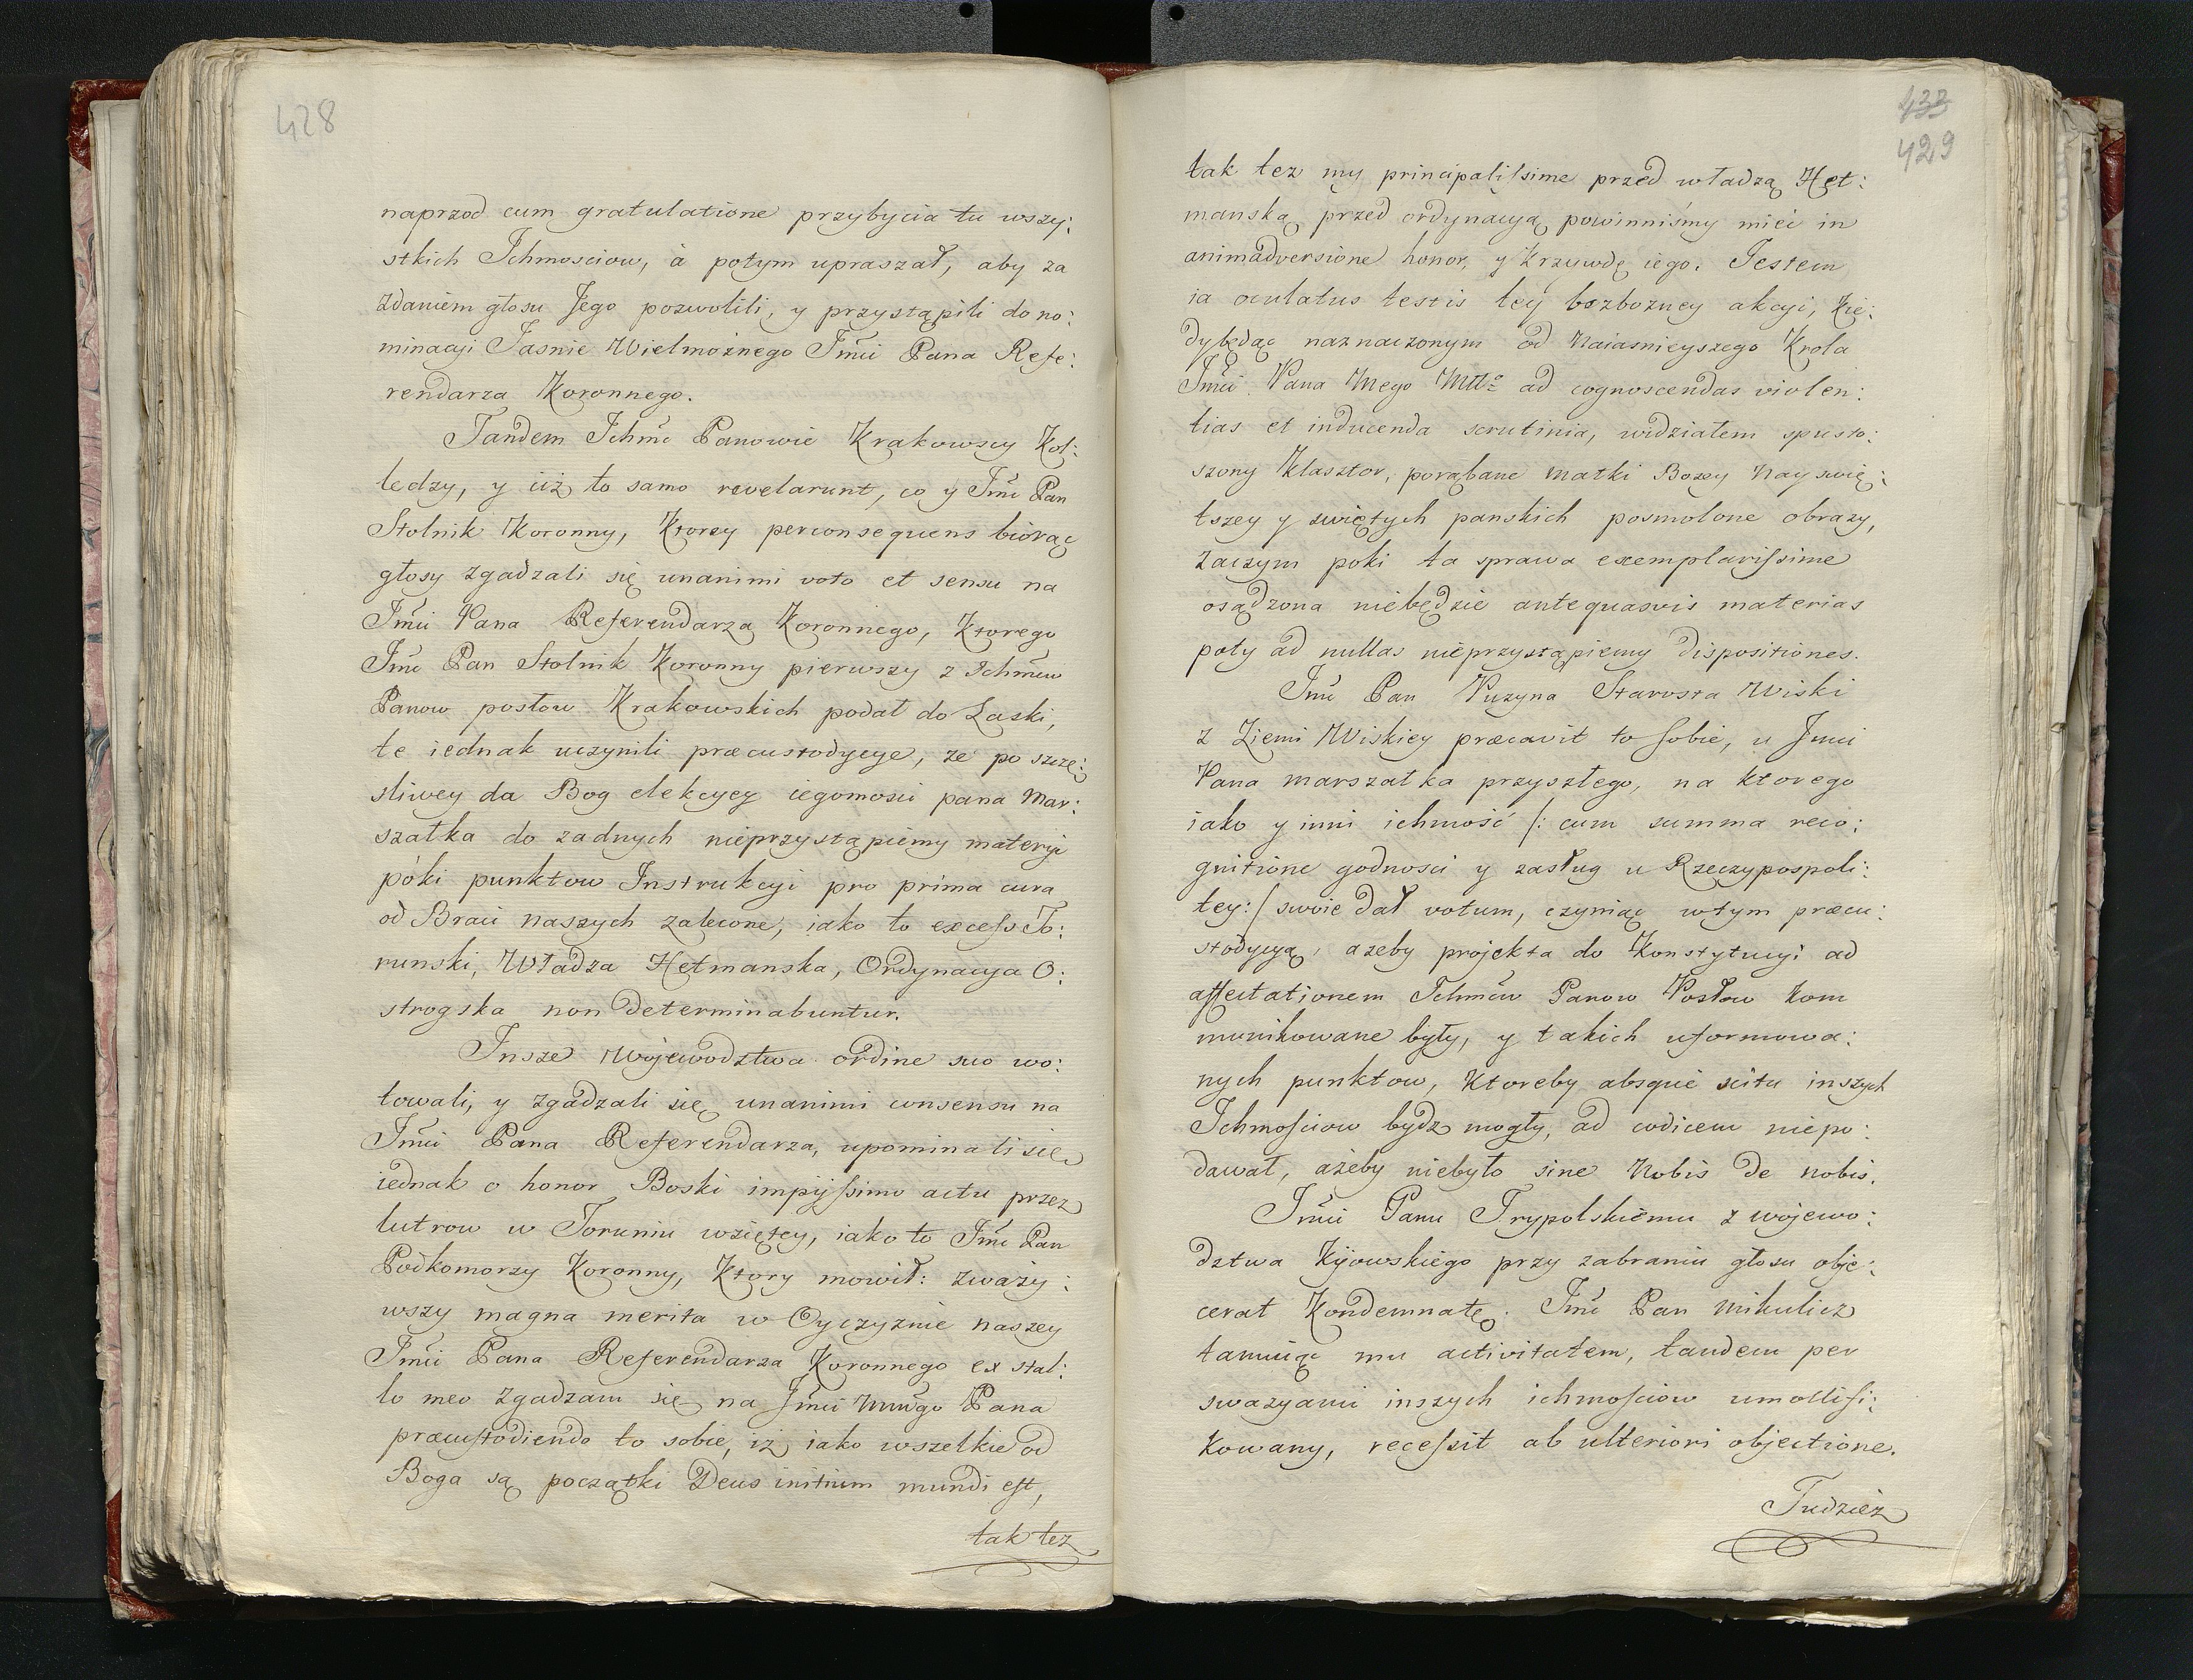 428
naprzod cum gratulatione przybycia tu wszy:
stkich Ichmosciow, à potym upraszał, aby za
zdaniem głosu Jego pozwolili, y przystąpili do no:
minacyi Jasnie Wielmożnego Jmci Pana Refe:
rendarza Koronnego.
Tandem Ichmć Panowie Krakowscy Kol:
ledzy, y iiż to samo revelarunt, co y Jmć Pan
Stolnik Koronny, Ktorzy per consequens biorąc
głosy zgadzali się unanimi voto et sensu na
Jmći Pana Referendarza Koronnego, Ktorego
Jmć Pan Stolnik Koronny pierwszy z Ichmćiw
Panow posłow Krakowskich podał do Laski,
te iednak uczynili præcustodycye, ze po szczę:
sliwey da Bog elekcyey iegomosci pana Mar:
szałka do zadnych nieprzystąpiemy materyi
póki punktow Instrukcyi pro prima cura
od Braci naszych zalecone, iako to excess To:
runski, Władza Hetmanska, Ordynacya O:
strogska non determinabuntur.
Insze Wojewodztwa ordine suo wo:
towali, y zgadzali się unanimi consensu na
Jmći Pana Referendarza, upominali się
iednak o honor Boski impijssimo actu przez
lutrow w Toruniu wzięty, iako to Jmć Pan
Podkomorzy Koronny, Ktory mowił: zważy:
wszy magna merita w Oyczyznie naszey
Jmći Pana Referendarza Koronnego ex stal:
lo meo zgadzam się na Jmći mmgo Pana
præcustodiendo to sobie, iż iako wszelkie od
Boga są początki Deus initium mundi est,
tak tez
433
429
tak tez my principalissime przed władzą Het:
manską przed ordynacyą powinniśmy mieć in
animadversione honor, y Krzywdę iego. Jestem
ia oculatus testis tey bezbozney akcyi, Kie:
dy będąc naznaczonym od Naiasnieyszego Krola
Jmći Pana Mego Mttº ad cognoscendas violen:
tias et inducenda scrutinia, widziałem spusto:
szony Klasztor, porąbane Matki Bozey Nayswię:
tszey y swiętych panskich posmolone obrazy,
zaczym poki ta sprawa exemplarissime
osądzona niebędzie antequasvis materias
poty ad nullas nieprzystąpiemy dispositiones.
Jmć Pan Puzyna Starosta Wiski
z Ziemi Wiskiey præcavit to sobie, u Jmci
Pana marszałka przyszłego, na ktorego
iako y inni ichmość /: cum summa reco:
gnitione godnosci y zasług u Rzeczypospoli:
tey:/ swoie dał votum, czyniąc wtym præcu:
stodycyą, azeby projekta do Konstytucyi ad
affectationem Ichmćiw Panow Posłow kom
munikowane były, y takich uformowa:
nych punktow, Ktoreby absque scitu inszych
Ichmościow bydz mogły, ad codicem niepo:
dawał, ażeby niebyło sine Nobis de nobis.
Jmći Panu Trypolskiemu z wojewo:
dztwa Kijowskiego przy zabraniu głosu obje:
cerat Kondemnatę. Jmć Pan Mikulicz
tamuiąc mu activitatem, tandem per
swazyami inszych ichmościow umollifi:
kowany, recessit ab ulteriori objectione.
Tudziez